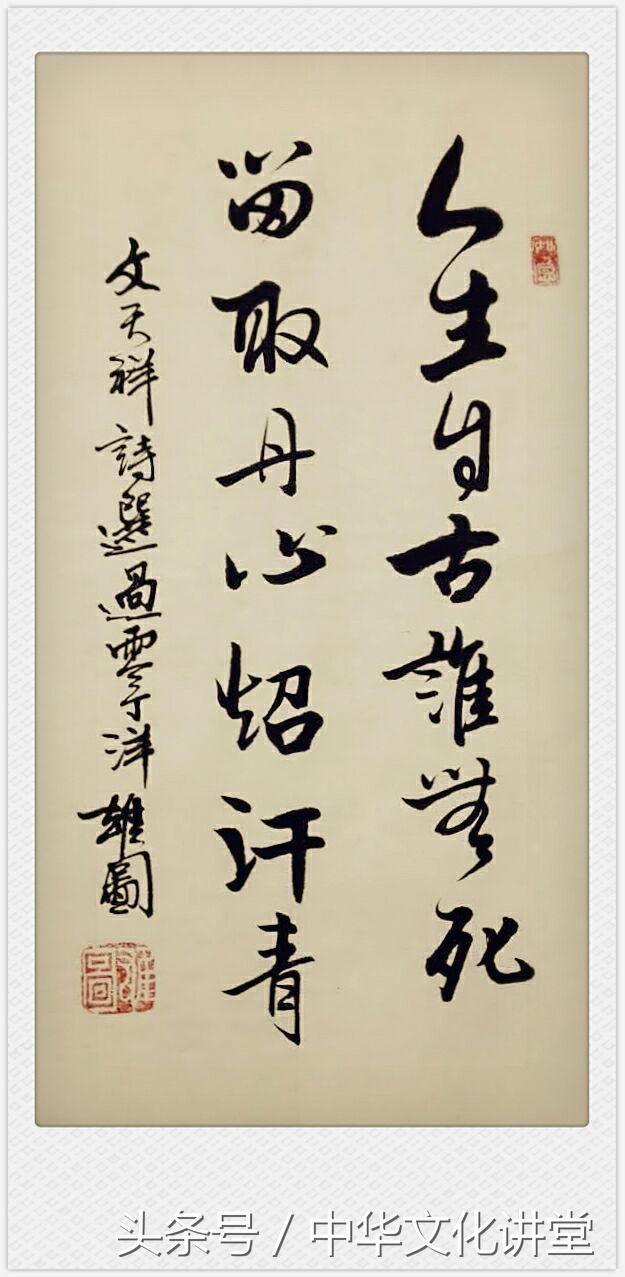 人生自古誰無死
留取丹心炤汗青
文天祥詩選過零丁洋 雄圖
头条号 / 中华文化讲堂